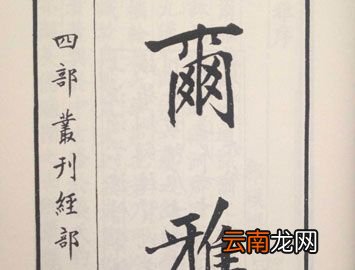 爾雅
四部叢刊經部
云南龙网